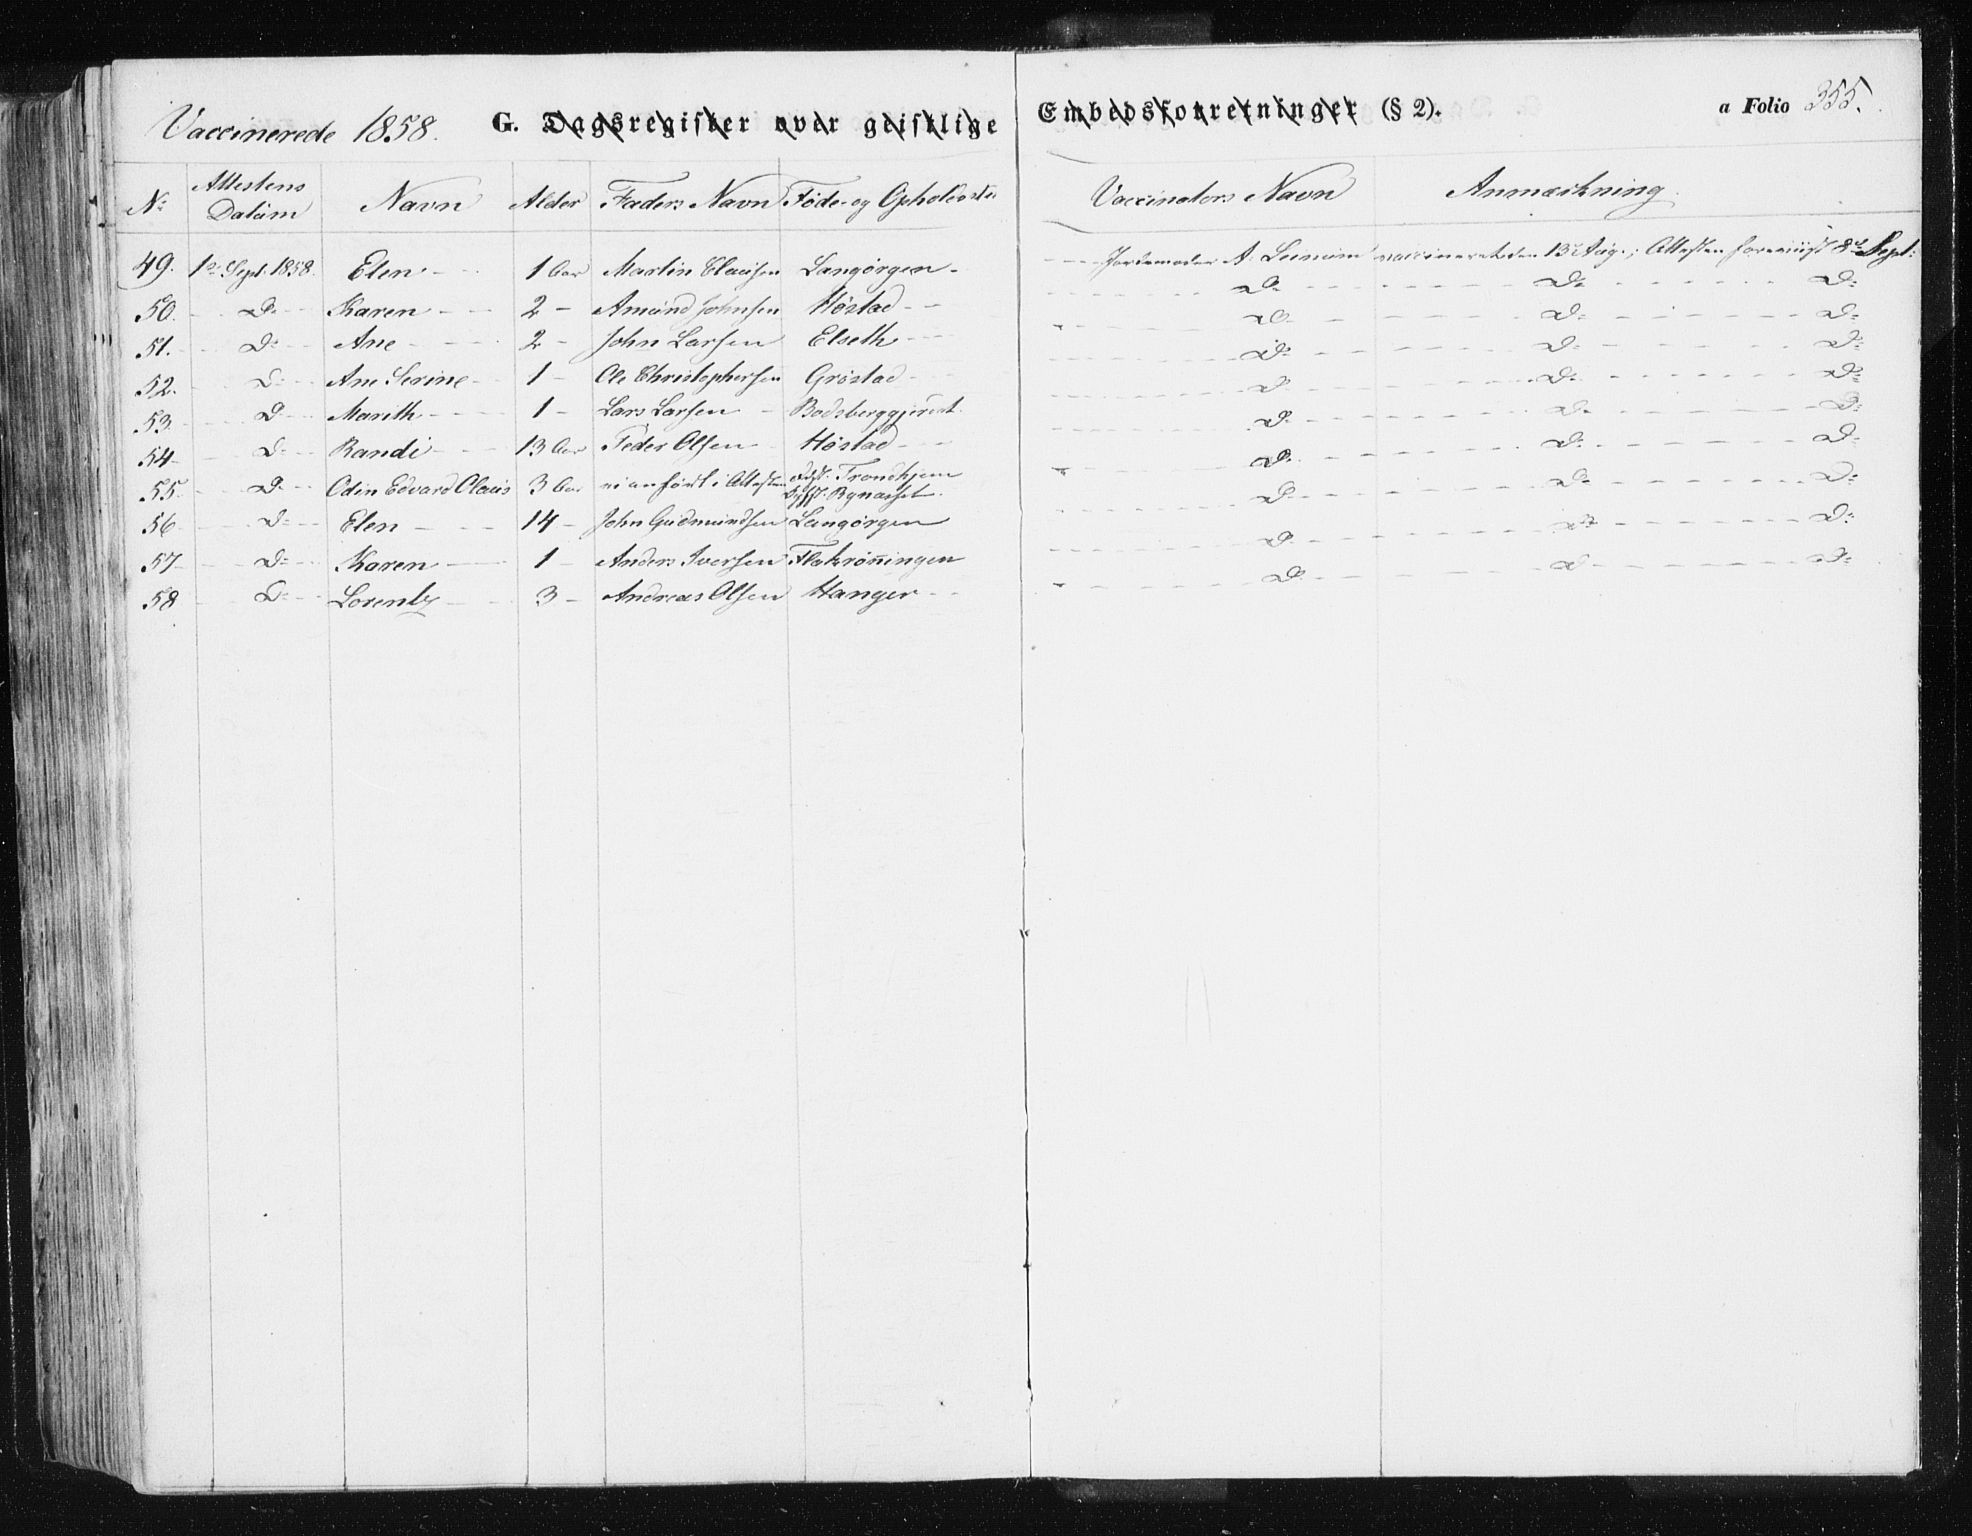 Vaccinerede 1858. G. Dagsregister over geistlige Embedsforretninger (§ 2). a Folio 355.
No Attestens Datum Navn Alder Faders Navn Føde- og Opholdsste Vaccinators Navn Anmærkning
49. 1ste Sept. 1858. Elen 1 Aar Martin Clausen Langørgen Jordemoder A. vaccineret den 13de Aug.; Attesten foreviist 8de Sept:
50. Do Karen 2 - Amund Johnsen Høstad Do Do Do
51. Do Ane 2 - John Larsen Elseth Do Do Do
52. Do Ane Serine 1 - Ole Christophersen Grøstad Do Do Do
53. Do Marith 1 - Lars Larsen Do Do Do
54 Do Randi 13 Aar Peder Olsen Høstad Do Do Do
55. Do Odin Edvard Olaus 3 Aar ei anført i Attesten Fdst. Trondhjem Do Do Do
Opst. Bynæsset.
56 Do Elen 14 - John Gudmundsen Langørgen Do Do Do
57 Do Karen 1 - Anders Iversen Flakrønningen Do Do Do
58 Do Lorentz 3 - Andreas Olsen Hanger Do Do Do